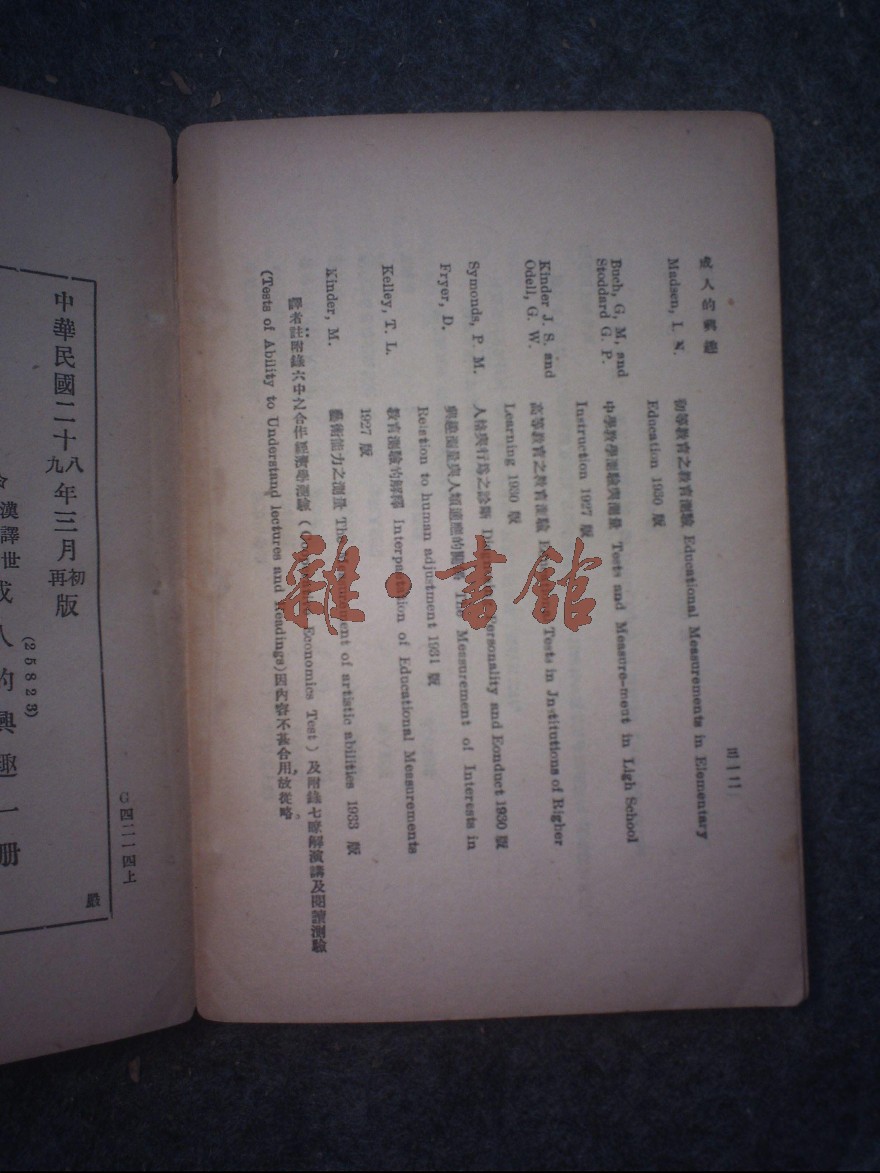 成人的興趣
Madsen, I. N. 初等教育之教育測驗 Educational Measurements in Elementary
Education 1930 版
Buch, G, M, and
Stoddard G. P. 中學教學測驗與測量 Tests and Measure-ment in Ligh School
Instruction 1927 版
Kinder J. S. and
Odell, G. W. 高等教育之教育測驗 Tests in Jnstitutions of Righer
Learning 1930 版
Symonds, P. M. 人格與行為之診斷 Personality and Eonduct 1930 版
Fryer, D. 興趣測量與人類適應的關係 The Measurement of Interests in
Relation to human adjustment 1931 版
Kelley, T. L. 教育測驗的解釋 Interpretation of Educational Measurements
1927 版
Kinder, M. 藝術能力之測量 The Measurement of artistic abilities 1933 版
譯者註附錄六中之合作經濟學測驗 ( Economics Test ) 及附錄七瞭解演講及閱讀測驗
(Tests of Ability to Understand lectures and Readings)因內容不甚合用故從略
雜·書館
中華民國二十八年三月初版
九 再
漢譯世
成人的興趣一册
(25823)
G四二一四上
嚴